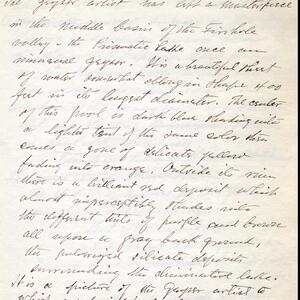 the geyser artist has left a masterpiece
in the middle basin of the Firehole
valley - the Prismatic Lake once an
immense geyser. It is a beautiful sheet
of water somewhat oblong in shape 400
feet in its longest diameter. The center
of this pool is dark blue shading into
a lighter tint of the same color then
comes a zone of delicate yellow
fading into orange. Outside its rim
there is a brilliant red deposit which
almost imperceptibly shades into
the different tints of purple and brown
all upon a gray back ground,
the pulverized silicate deposits
surrounding the diminutive lake.
It is a picture of the Geyser artist to
which